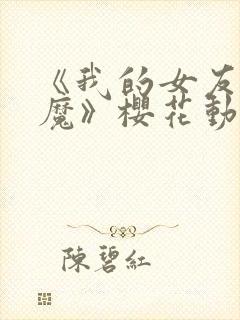 《我的女友
魔》櫻花動
陳碧紅